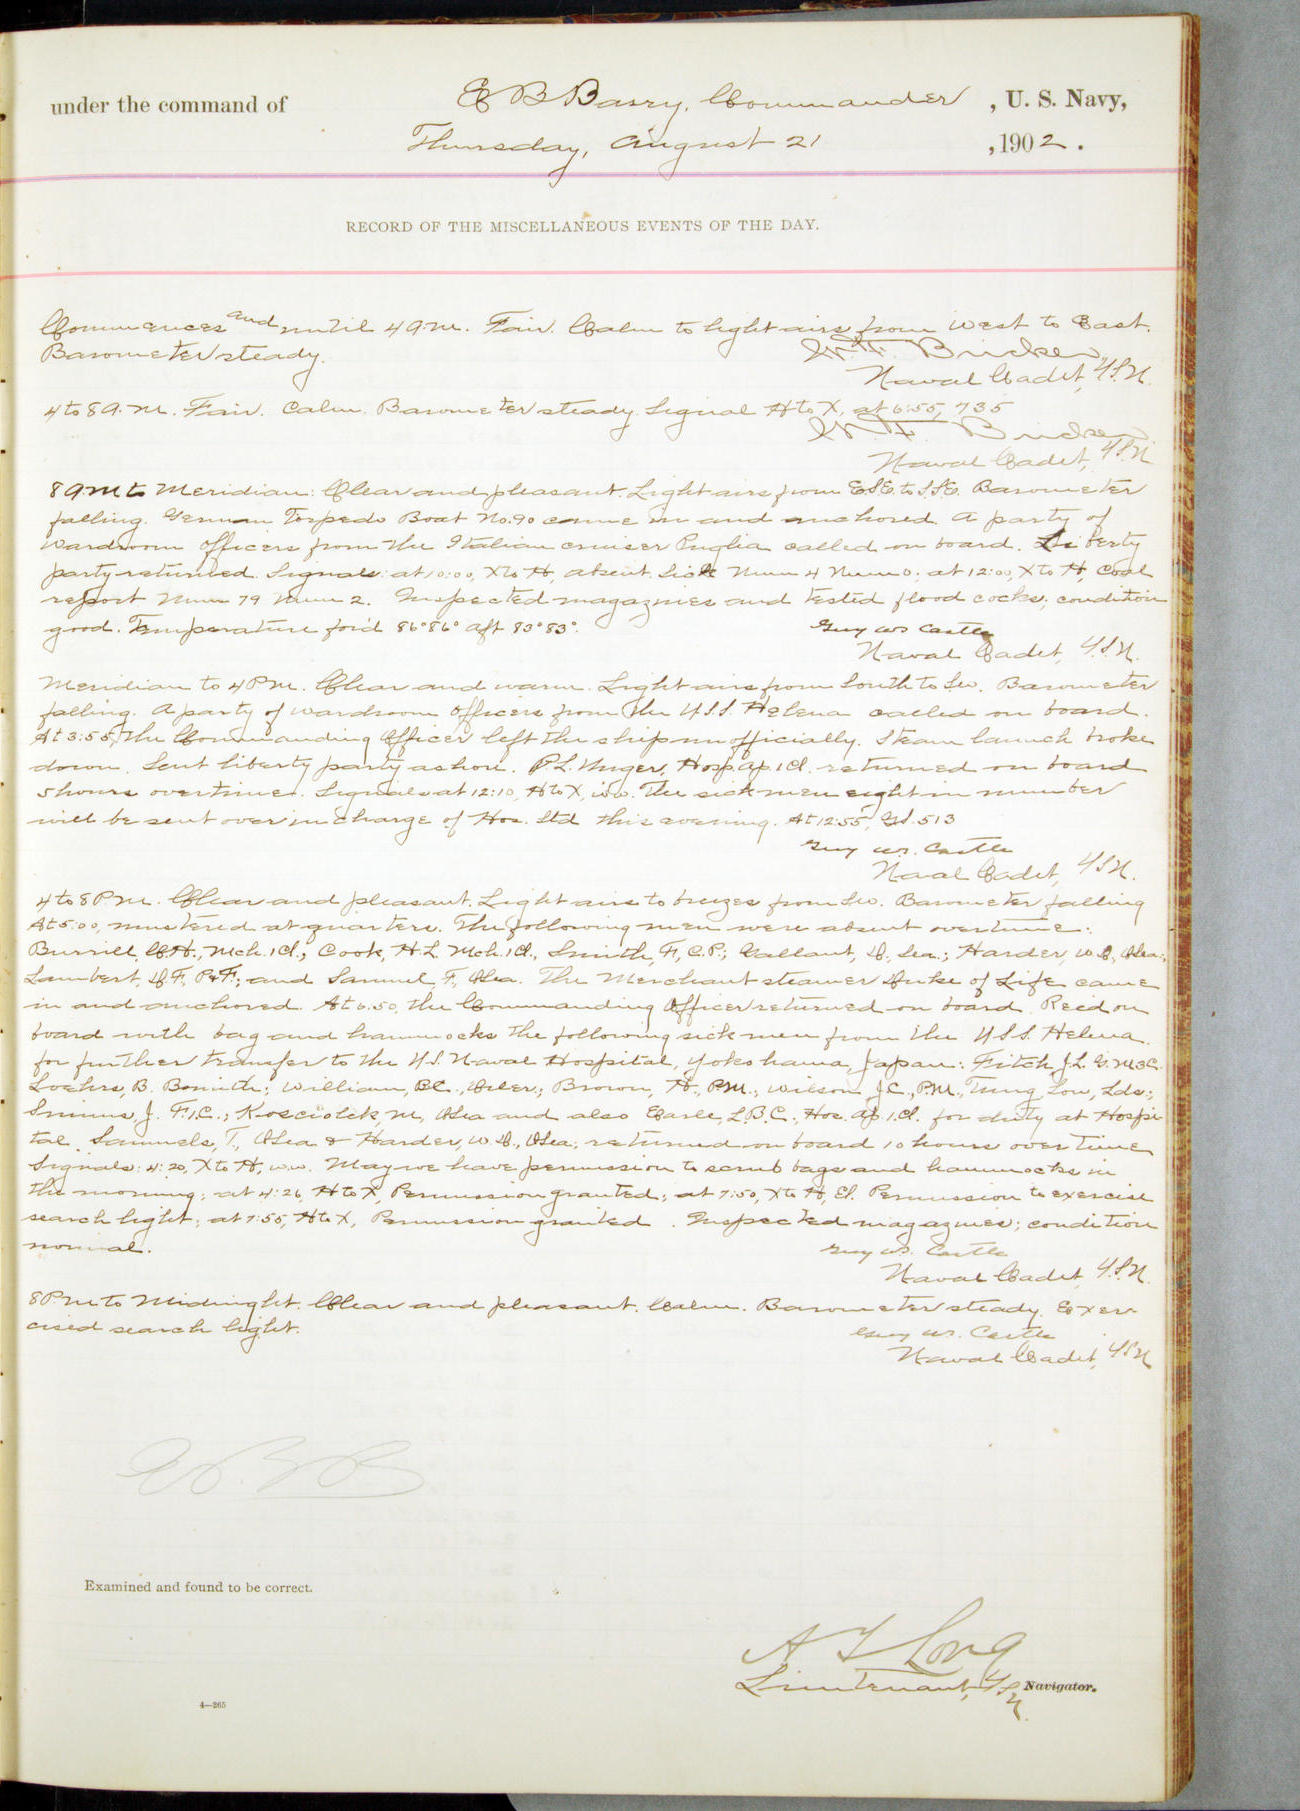 under the command of E B Barry, Commander, U. S. Navy,
Thursday, August 21, 1902.
RECORD OF THE MISCELLANEOUS EVENTS OF THE DAY.
Commences and until 4 a.m. Fair. Calm to light airs from West to East.
Barometer steady.
Naval Cadet, U.S.N.
4 to 8 A.M. Fair. Calm. Barometer steady. Signal H to X, at 6:55, 735
Naval Cadet, U.S.N.
8 A.M. to Meridian: Clear and pleasant. Light airs from E.S.E. to S.S.E. Barometer
falling. German Torpedo Boat No. 90 came in and anchored. A party of
Wardroom Officers from the Italian cruiser Puglia called on board. Liberty
party returned. Signals: at 10:00, X to H, absent. Sick Num 4 Num 0; at 12:00, X to H, Coal
report Num 79 Num 2. Inspected magazines and tested flood cocks; condition
good. Temperature for'd 86° 86° aft 83° 83°.
Guy W.S. Castle
Naval Cadet, U.S.N.
Meridian to 4 P.M. Clear and warm. Light airs from South to SW. Barometer
falling. A party of wardroom officers from the U.S.S. Helena called on board.
At 3:55, the Commanding Officer left the ship unofficially. Steam launch broke
down. Sent liberty party ashore. P.L. Unger, Hosp. Ap. 1 Cl. returned on board
5 hours overtime. Signals at 12:10, H to X, w.w. The sick men eight in number
will be sent over in charge of Hos. Std this evening. At 12:55, G.S. 513
Guy W.S. Castle
Naval Cadet, U.S.N.
4 to 8 P.M. Clear and pleasant. Light airs to breezes from SW. Barometer falling
At 5:00, mustered at quarters. The following men were absent overtime:
Burrill, C.H., Mch. 1 Cl., Cook, H.L. Mch. 1 Cl., Smith, F., C.P.; Gallant, D., Sea.; Harder, W.D., OSea.;
Lambert, D.F., P&F.; and Samuel, F., OSea. The Merchant steamer Duke of Fife came
in and anchored. At 6.50, the Commanding Officer returned on board. Rec'd on
board with bag and hammocks the following sick men from the U.S.S. Helena
for further transfer to the U.S. Naval Hospital, Yokohama, Japan: Fitch, J.L. G.M.3C.
B. Bsmith; William, B.C., Oiler.; Brown, H., P.M., Wilson, J.C., P.M., Tung Low, Lds.;
Simms, J. F.1C.; M., OSea and also Earle, L.B.C., Hos. Ap. 1. Cl. for duty at Hospi-
tal. Samuels, T., OSea & Harder, W.D., OSea; returned on board 10 hours overtime
Signals: 4:20, X to H, w.w. May we have permission to scrub bags and hammocks in
the morning; at 4:26, H to X, Permission granted; at 7:50, X to H, El. Permission to exercise
search light; at 7:55, H to X, Permission granted. Inspected magazines; condition
normal.
Guy W.S. Castle
Naval Cadet, U.S.N.
8 P.M. to Midnight. Clear and pleasant. Calm. Barometer steady. Exer-
cised search light.
Guy W.S. Castle
Naval Cadet, U.S.N
Examined and found to be correct.
A T Long
Lieutenant, U.S.N. Navigator.
4—265